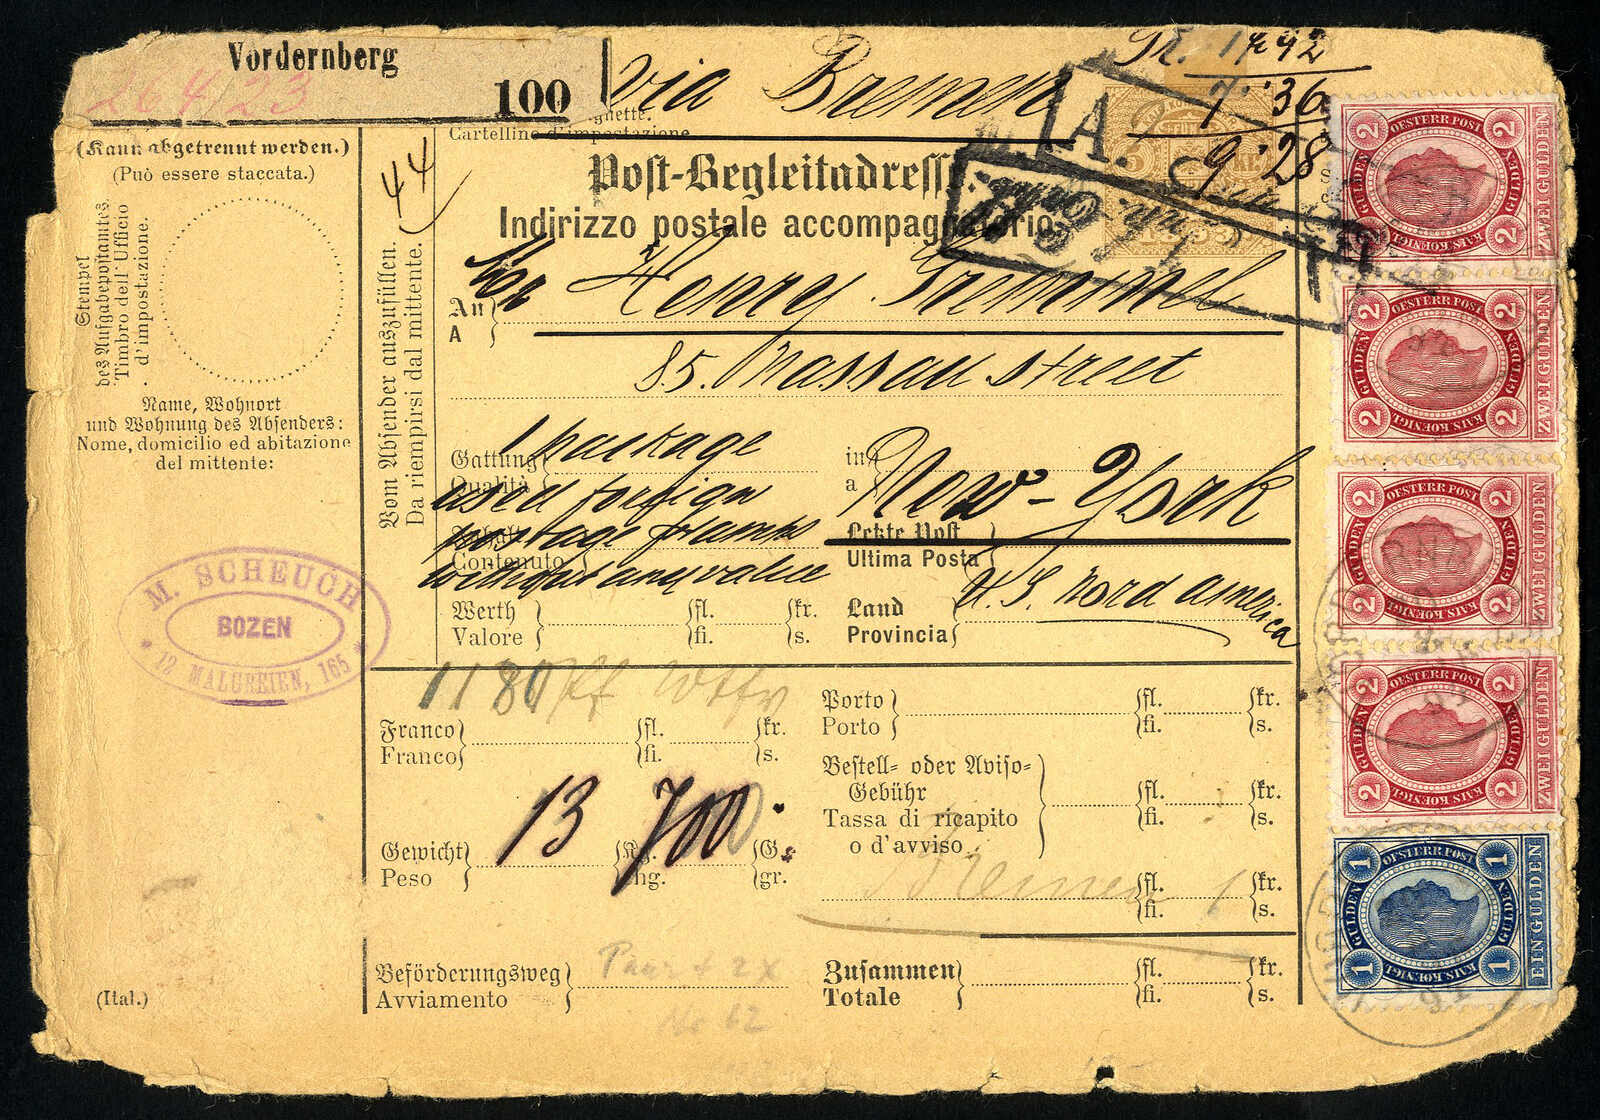 Vordernberg
264/23
100
via Bremen
Cartellino d'impostazione
(Kann abgetrennt werden.)
(Può essere staccata.)
44
Post-Begleitadresse.
Indirizzo postale accompagnatorio
Stempel
des Aufgabepostamtes.
Timbro dell' Ufficio
d'impostazione.
Name, Wohnort
und Wohnung des Absenders:
Nome, domicilio ed abitazione
del mittente:
M. SCHEUCH
BOZEN
* 12 MALUREIEN, 165 *
(Ital.)
Vom Absender auszufüllen.
Da riempirsi dal mittente.
An
A
Henry Gremmel
85. Nassau Street
Gattung
Qualità
1 package
used foreign
postage stamps
without any value
Inhalt
Contenuto
in
a
New-York
Letzte Post
Ultima Posta
Werth
Valore
fl.
fi.
kr.
s.
Land
Provincia
U.S. Nord America
1180
Franco
Franco
fl.
fi.
kr.
s.
Porto
Porto
fl.
fi.
kr.
s.
Bestell- oder Aviso-
Gebühr
Tassa di ricapito
o d'avviso
fl.
fi.
kr.
s.
Gewicht
Peso
13
Kg.
chg.
700
G.
gr.
Bremen
fl.
fi.
kr.
s.
Beförderungsweg
Avviamento
Zusammen
Totale
fl.
fi.
kr.
s.
No 62
1.92
7.36
9.28
OESTERR POST
2 2
GULDEN
GULDEN
KAIS. KOENIGL
2 2
ZWEI GULDEN
OESTERR POST
2 2
GULDEN
GULDEN
KAIS. KOENIGL
2 2
ZWEI GULDEN
OESTERR POST
2 2
GULDEN
GULDEN
KAIS. KOENIGL
2 2
ZWEI GULDEN
OESTERR POST
2 2
GULDEN
GULDEN
KAIS. KOENIGL
2 2
ZWEI GULDEN
OESTERR POST
1 1
GULDEN
GULDEN
KAIS. KOENIGL
1 1
EIN GULDEN